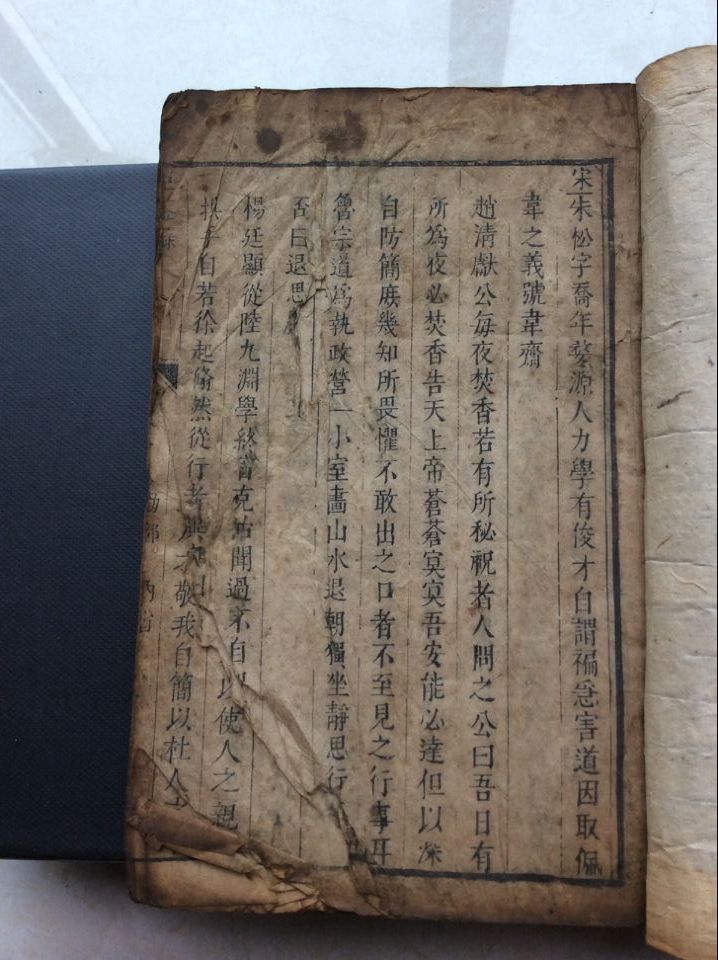 宋朱松字喬年婺源人力學有俊才自謂褊急害道因取佩
韋之義號韋齋
趙清獻公每夜焚香若有所秘祝者人問之公曰吾日有
所為夜必焚香告天上帝蒼蒼寞寞吾安能必達但以深
自防簡庶幾知所畏懼不敢出之口者不至見之行事耳
魯宗道為執政營一小室畫山水退朝獨坐靜思行
否曰退思
楊廷顯從陸九淵學終當克始聞過不自以使人之親
拱手自若徐起翛然從行者敬我自簡以杜人